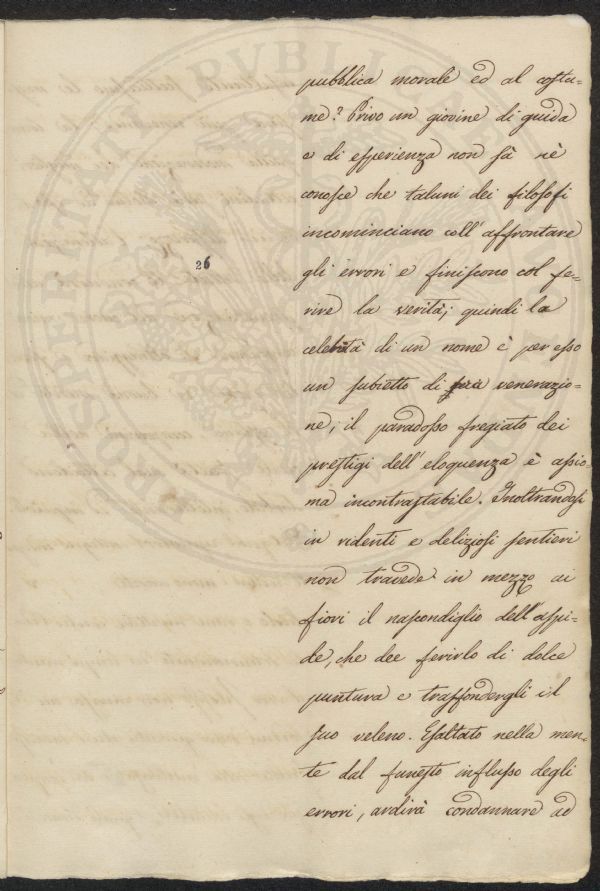 26
pubblica morale ed al costu-
me? Privo un giovine di guida
e di esperienza non sà nè
conosce che taluni dei filosofi
incominciano coll'affrontare
gli errori e finiscono col fe-
rire la verità; quindi la
celebrità di un nome è per esso
un subietto di venerazio-
ne; il paradosso fregiato dei
prestigi dell'eloquenza è assio-
ma incontrastabile. Inoltrandosi
in ridenti e deliziosi sentieri
non travede in mezzo ai
fiori il nascondiglio dell'aspi-
de, che dee ferirlo di dolce
puntura e trasfondergli il
suo veleno. Esaltato nella men-
te dal funesto influsso degli
errori, ardirà condannare ad
PROSPERITATI PVBLICAE